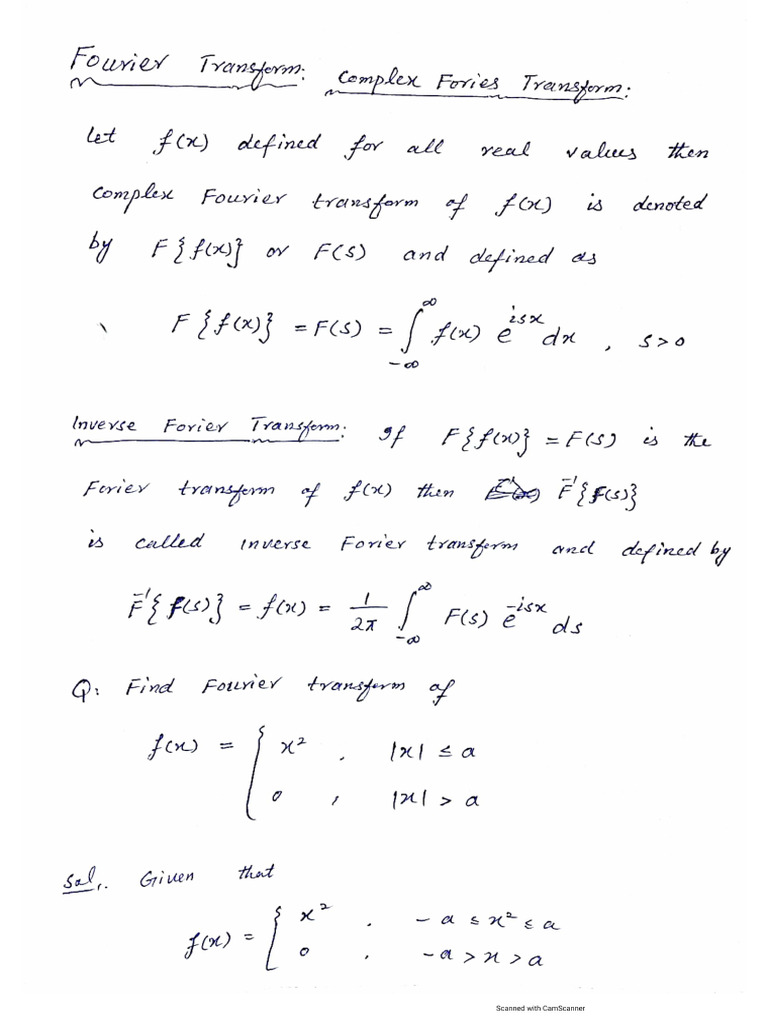 Fourier Transform: Complex Fories Transform:
Let f(x) defined for all real values then
Complex Fourier transform of f(x) is denoted
by F{f(x)} or F(s) and defined as
F{f(x)} = F(s) = ∫_{-∞}^{∞} f(x) e^{isx} dx , s>0
Inverse Forier Transform: If F{f(x)} = F(s) is the
Forier transform of f(x) then F^{-1}{F(s)}
is called inverse Forier transform and defined by
F^{-1}{F(s)} = f(x) = 1/2π ∫_{-∞}^{∞} F(s) e^{-isx} ds
Q: Find Fourier transform of
f(x) = { x² , |x| ≤ a
0 , |x| > a
Sol,. Given that
f(x) = { x² , -a ≤ x² ≤ a
0 , -a > x > a
Scanned with CamScanner